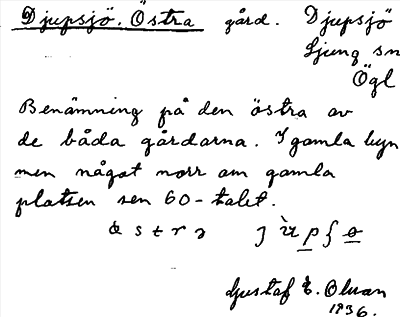 Djupsjö, Östra gård. Djupsjö
Ljung sn
Ögl
Benämning på den östra av
de båda gårdarna. I gamla byn
men något norr om gamla
platsen sen 60-talet.
Gustaf E. Olvan
1936.